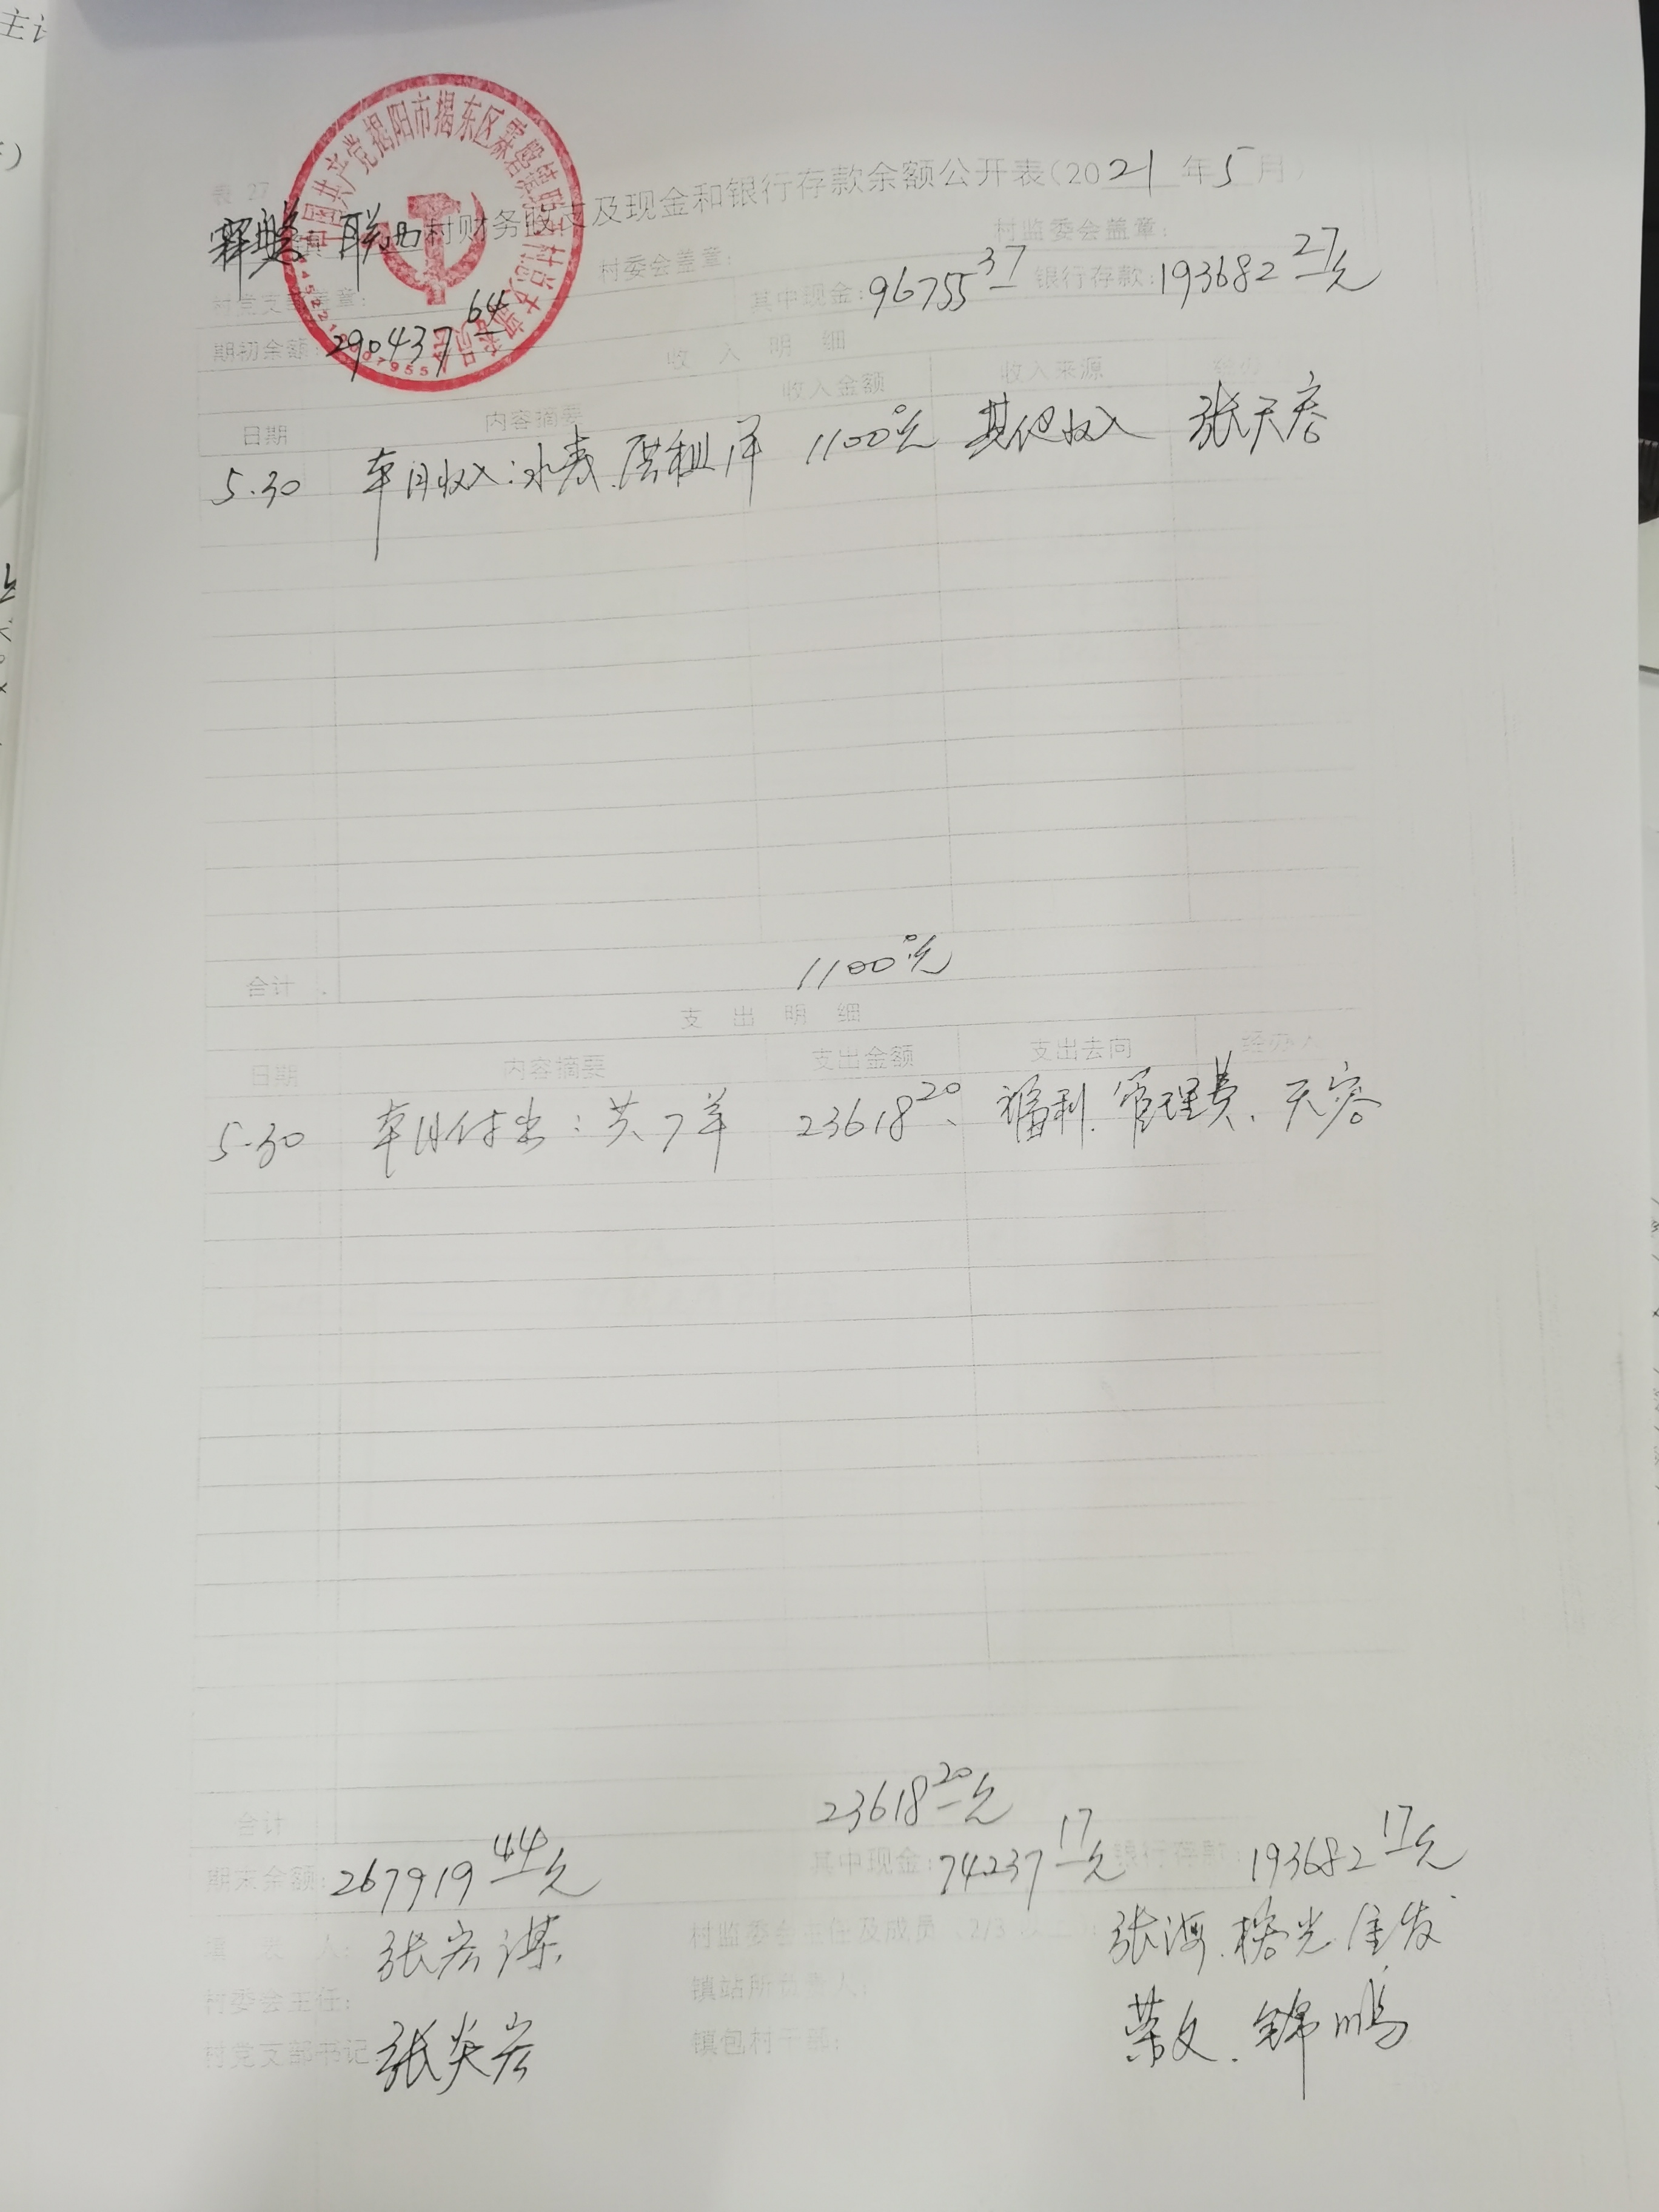 中国共产党揭阳市揭东区霖磐镇联西村总支部委员会
表 27
霖磐镇 联西村财务收支及现金和银行存款余额公开表(2021年5月)
村党支部盖章: 村委会盖章: 村监委会盖章:
期初余额:290437.64 其中现金:96755.37 银行存款:193682.27元
收 入 明 细
日期 内容摘要 收入金额 收入来源 经办
5.30 本月收入:水表.厝租 1100元 其他收入 张天容
合计 1100元
支 出 明 细
日期 内容摘要 支出金额 支出去向 经办人
5.30 本月付出:共7单 23618.20 福利.管理费. 天容
合计 23618.20元
期末余额:267919.44元 其中现金:74237.17元 银行存款 193682.17元
填 表 人: 张宏谋 村监委会主任及成员(2/3以上): 张海.榕光.
村委会主任: 镇站所负责人: 荣文.锦鹏
村党支部书记: 张炎宏 镇包村干部: